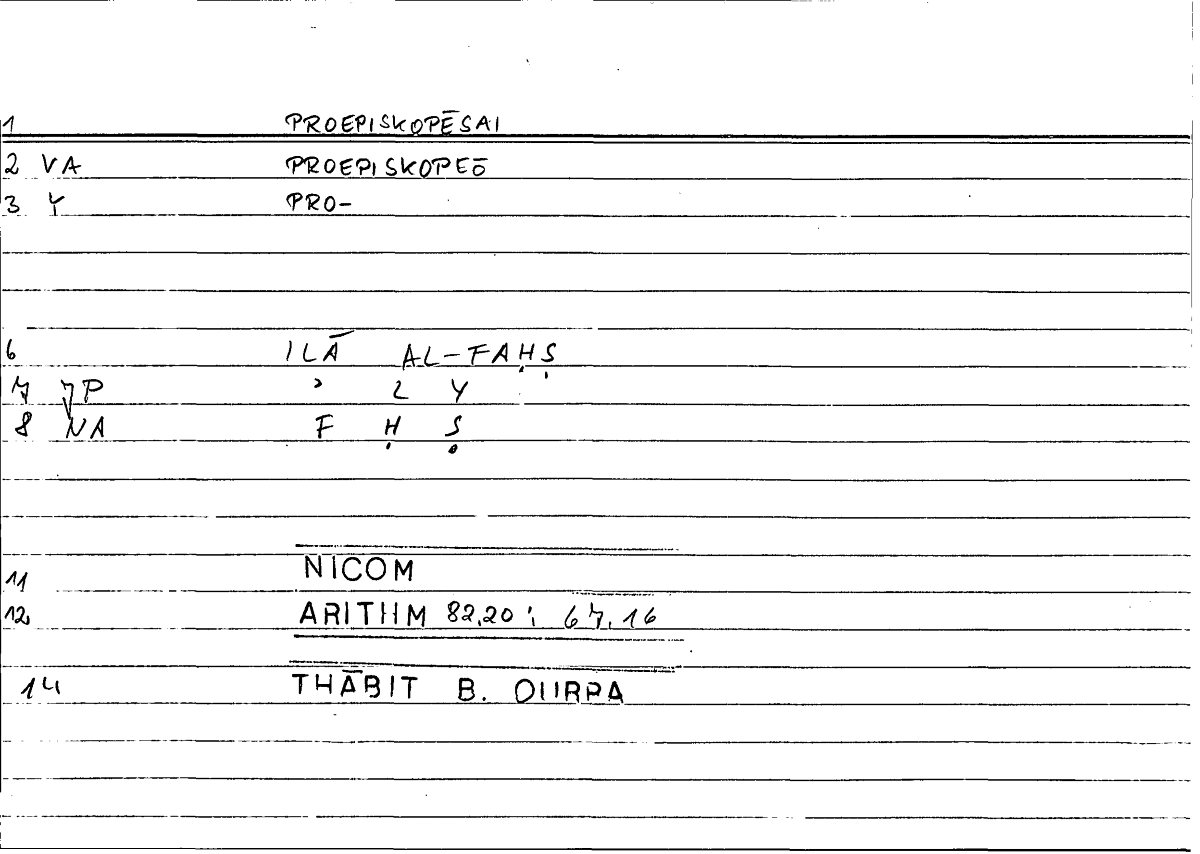 1 PROEPISKOPĒSAI
2 VA PROEPISKOPEŌ
3 Y PRO-
6 ILĀ AL-FAḤṢ
7 JP ʾ L Y
8 NA F Ḥ Ṣ
11 NICOM
12 ARITHM 82,20 ; 67,16
14 THĀBIT B. QURRA